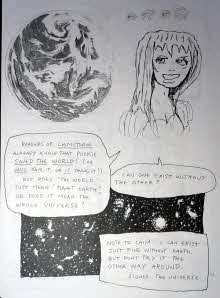 READERS OF CHIMSTORM
ALREADY KNOW THAT POOKIE
SAVED THE WORLD! (OR
WILL SAVE IT, OR IS SAVING IT)
BUT DOES "THE WORLD"
JUST MEAN "PLANET EARTH"
OR DOES IT MEAN THE
WHOLE UNIVERSE?
CAN ONE EXIST WITHOUT
THE OTHER?
NOTE TO CHIM: I CAN EXIST
JUST FINE WITHOUT EARTH,
BUT DON'T TRY IT THE
OTHER WAY AROUND.
SIGNED: THE UNIVERSE.